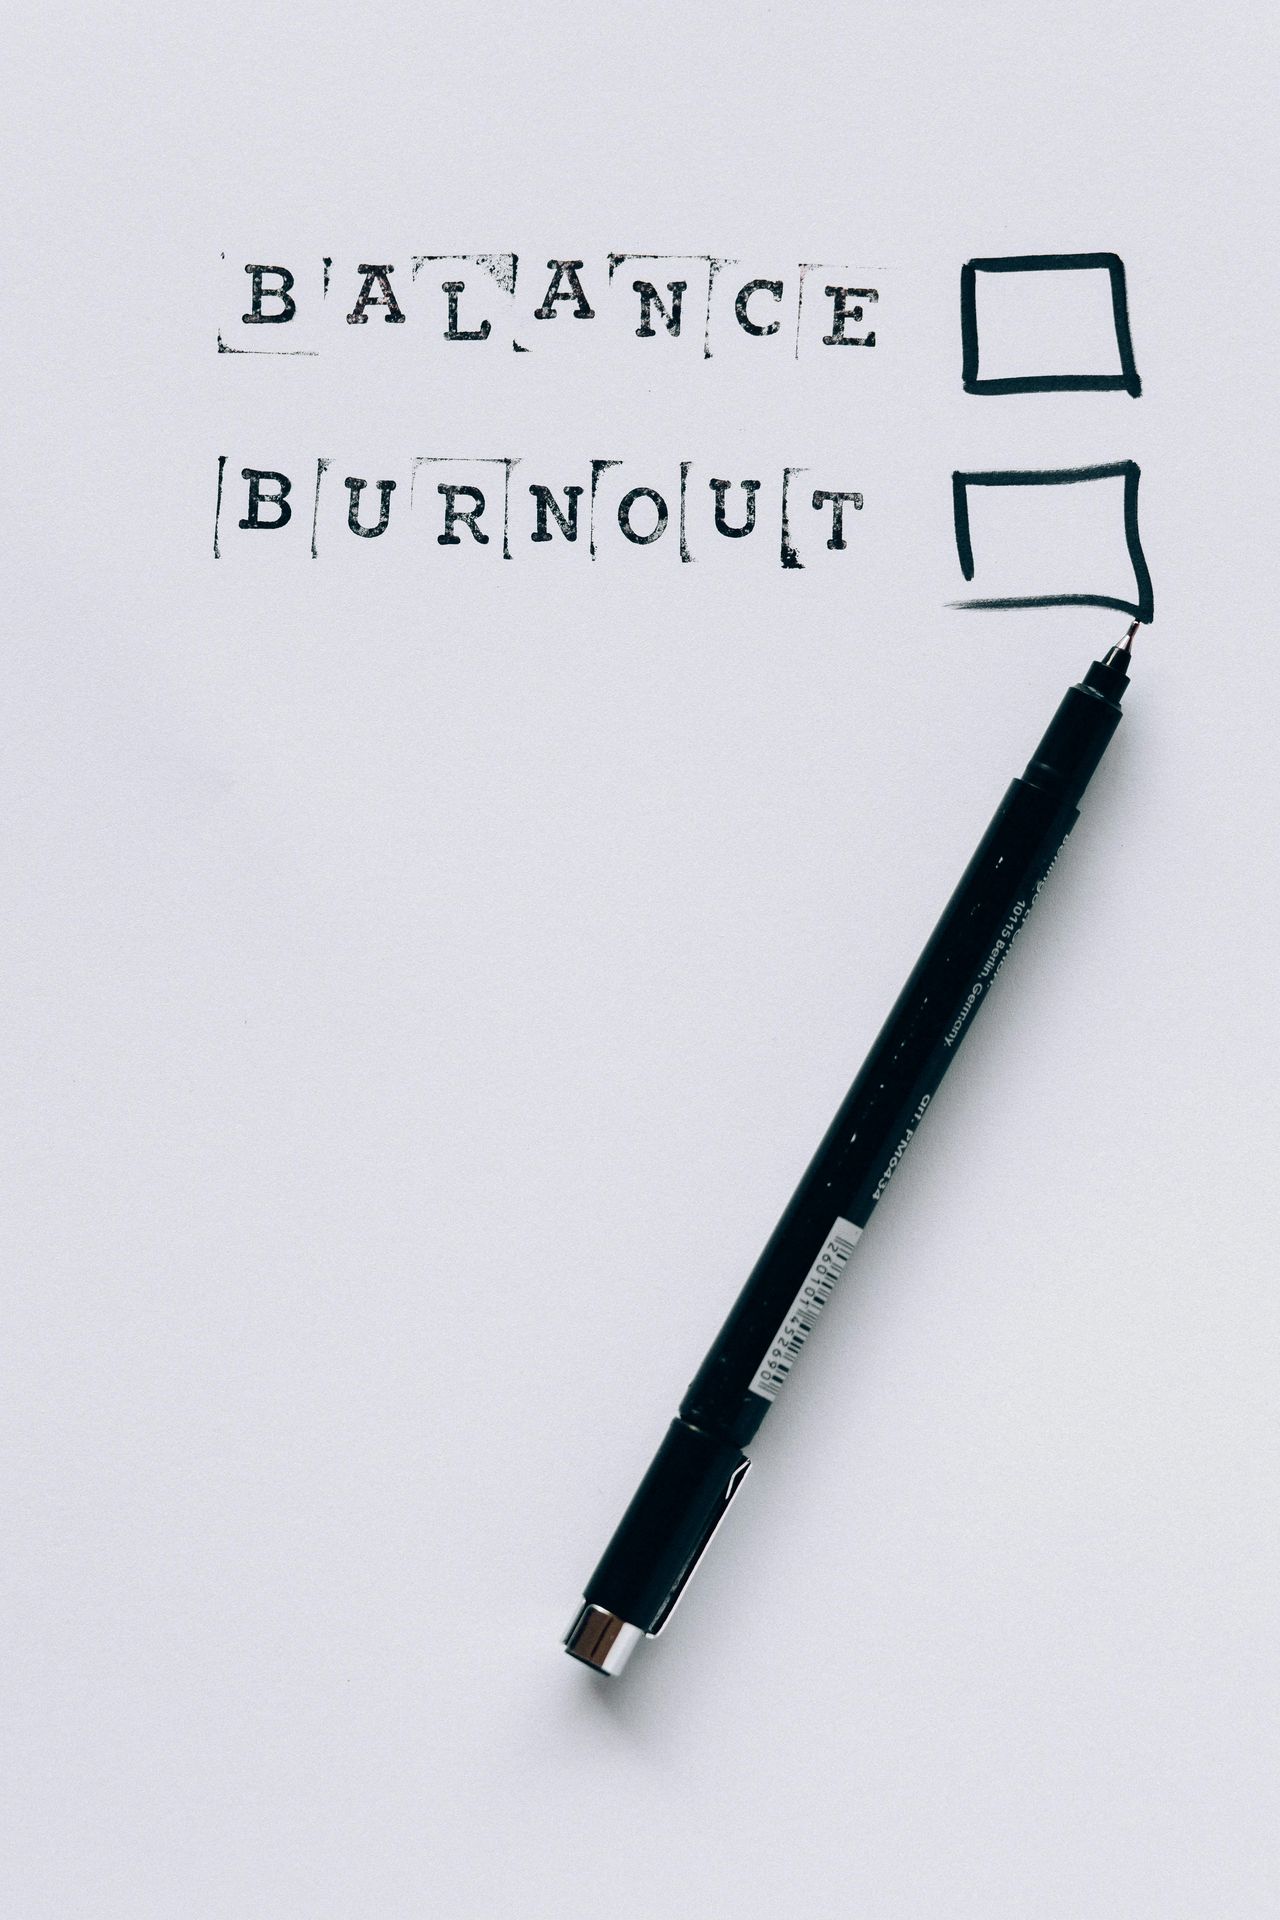 BALANCE
BURNOUT
10115 Berlin, Germany.
art. PM6434
260101452690